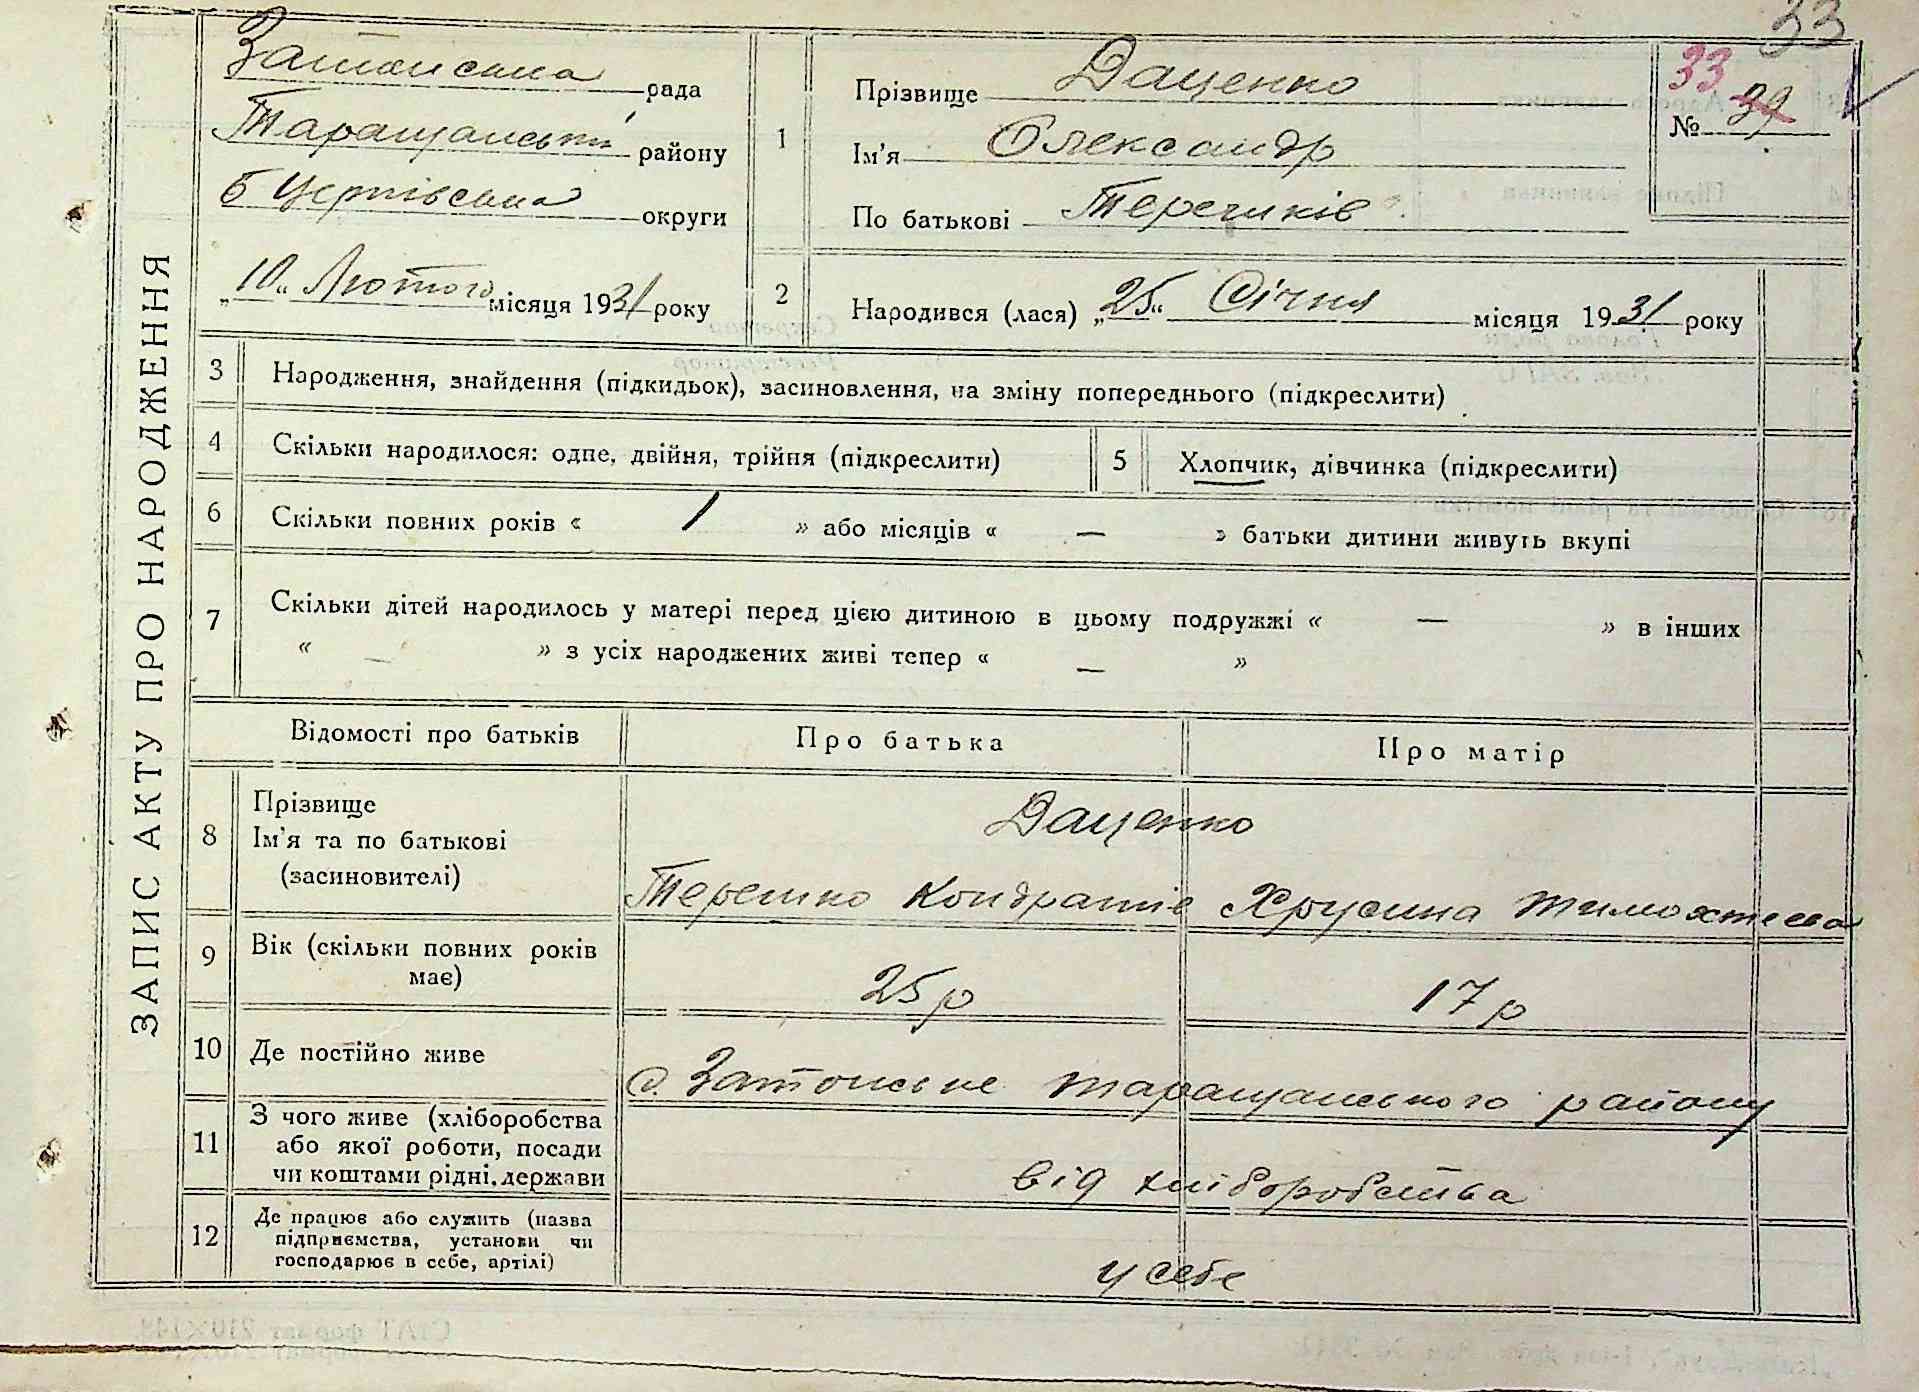 33
ЗАПИС АКТУ ПРО НАРОДЖЕННЯ
Затонська рада
Таращанськ району
Б Церківська округи
„10“ Лютого місяця 1931 року
1
Прізвище Даценко
Ім'я Олександр
По батькові
33
№ 39
2
Народився (лася) „25“ Січня місяця 1931 року
3 Народження, знайдення (підкидьок), засиновлення, на зміну попереднього (підкреслити)
4 Скільки народилося: одне, двійня, трійня (підкреслити) 5 Хлопчик, дівчинка (підкреслити)
6 Скільки повних років « 1 » або місяців « — » батьки дитини живуть вкупі
7 Скільки дітей народилось у матері перед цією дитиною в цьому подружжі « — » в інших
« — » з усіх народжених живі тепер « — »
Відомості про батьків Про батька Про матір
8 Прізвище
Ім'я та по батькові
(засиновителі)
Даценко
Терешко Кондратів Хрусина Тимохтеева
9 Вік (скільки повних років
має)
25 р 17 р
10 Де постійно живе
с. Затонське таращанського району
11 З чого живе (хліборобства
або якої роботи, посади
чи коштами рідні, держави
від хліборобства
12 Де працює або служить (назва
підприємства, установи чи
господарює в себе, артілі)
у себе
СтАТ формат 210×148